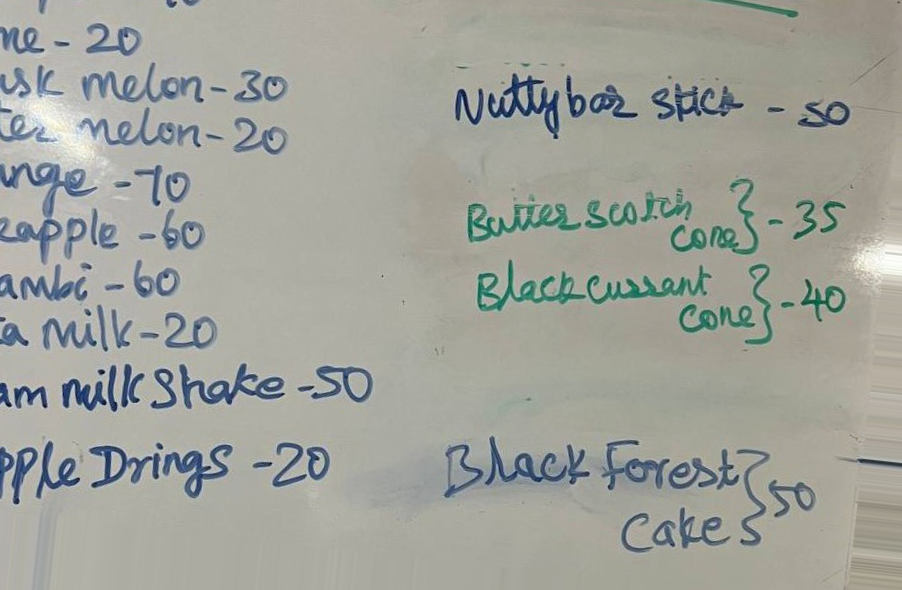 ne - 20
usk melon - 30
ter melon - 20
ange - 70
eapple - 60
ambi - 60
ta milk - 20
am milk Shake - 50
pple Drings - 20
Nutty bar stick - 50
Butter scotch
cone } - 35
Black cussant
cone } - 40
Black Forest
Cake } 50